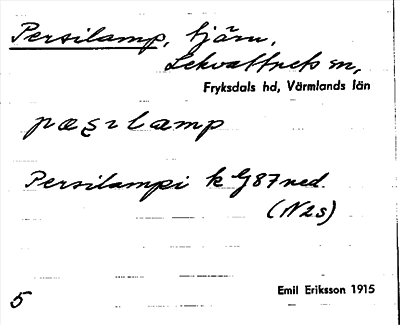 Persilamp, tjärn,
Lekvattnets sn,
Fryksdals hd, Värmlands län
pæsılæmp
Persilampi k 87 ned.
(N2s)
Emil Eriksson 1915
5